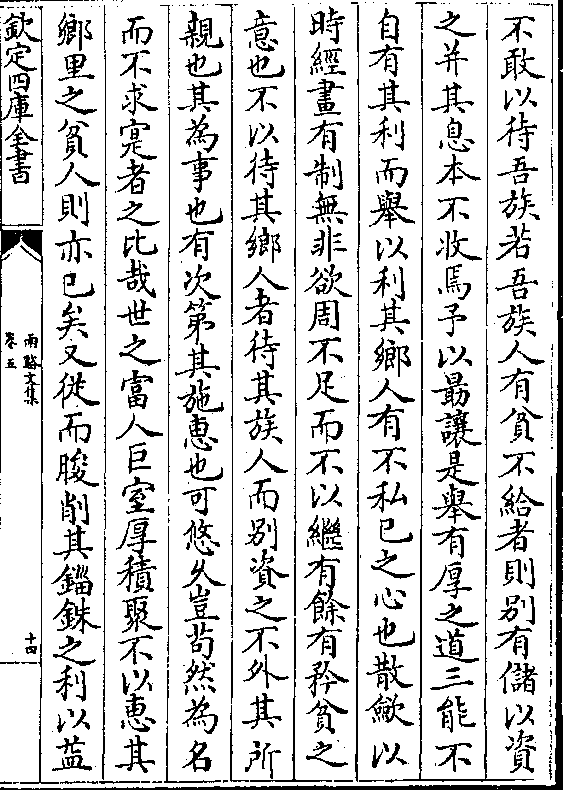 不敢以待吾族若吾族人有貧不給者則别有儲以資
之并其息本不收焉予以最讓是舉有厚之道三能不
自有其利而舉以利其鄉人有不私已之心也散歛以
時經畫有制無非欲周不足而不以繼有餘有矜貧之
意也不以待其鄉人者待其族人而别資之不外其所
親也其為事也有次第其施惠也可悠久豈茍然為名
而不求寔者之比哉世之富人巨室厚積聚不以惠其
鄉里之貧人則亦已矣又從而朘削其錙銖之利以益
欽定四庫全書
雨谿文集
卷五
十四